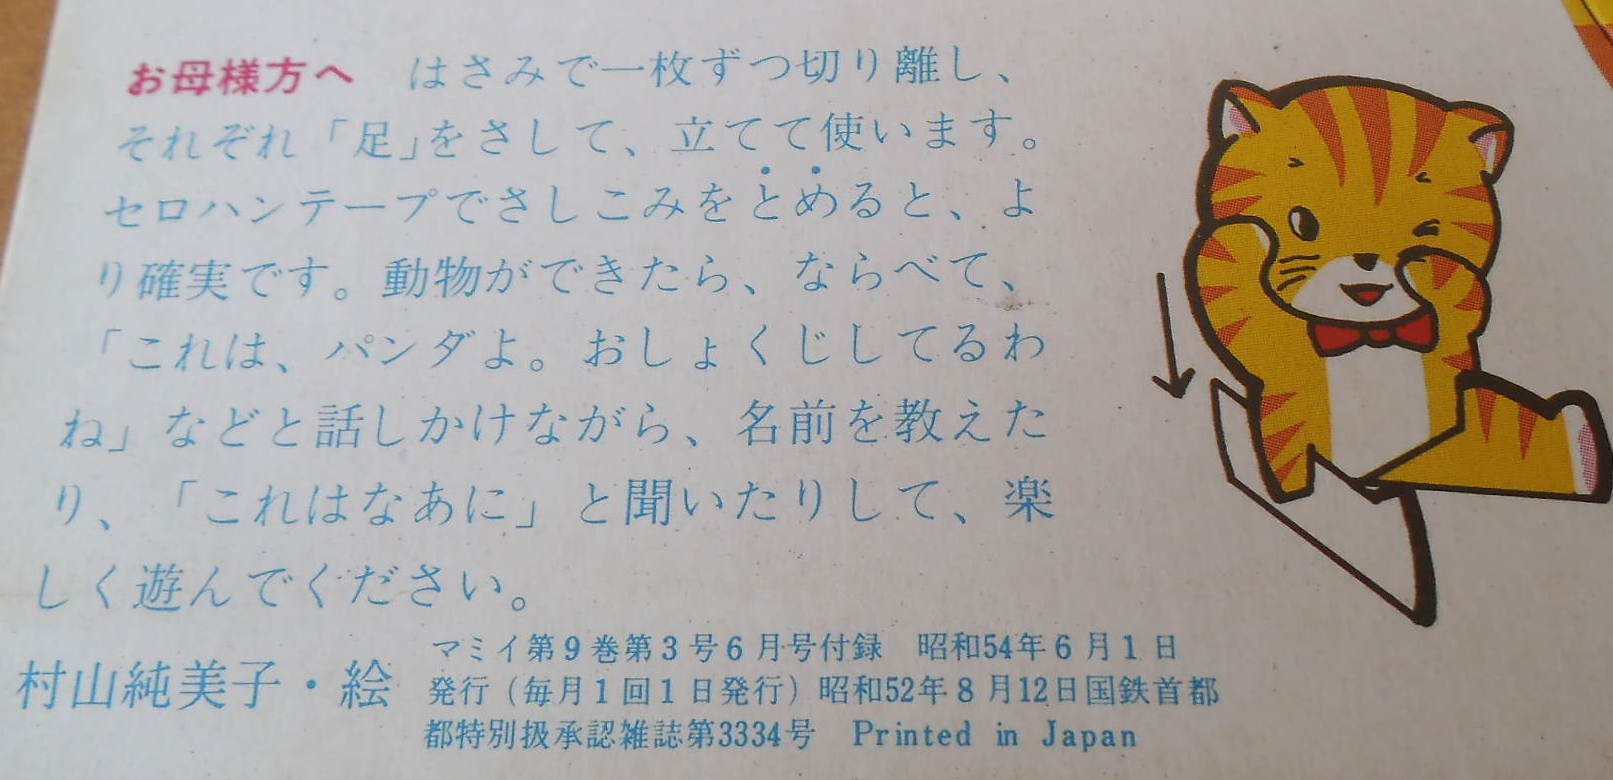 お母様方へ　はさみで一枚ずつ切り離し、
それぞれ「足」をさして、立てて使います。
セロハンテープでさしこみをとめると、よ
り確実です。動物ができたら、ならべて、
「これは、パンダよ。おしょくじしてるわ
ね」などと話しかけながら、名前を教えた
り、「これはなあに」と聞いたりして、楽
しく遊んでください。
村山純美子・絵
マミイ第9巻第3号6月号付録　昭和54年6月1日
発行（毎月1回1日発行）昭和52年8月12日国鉄首都
都特別扱承認雑誌第3334号　Printed in Japan